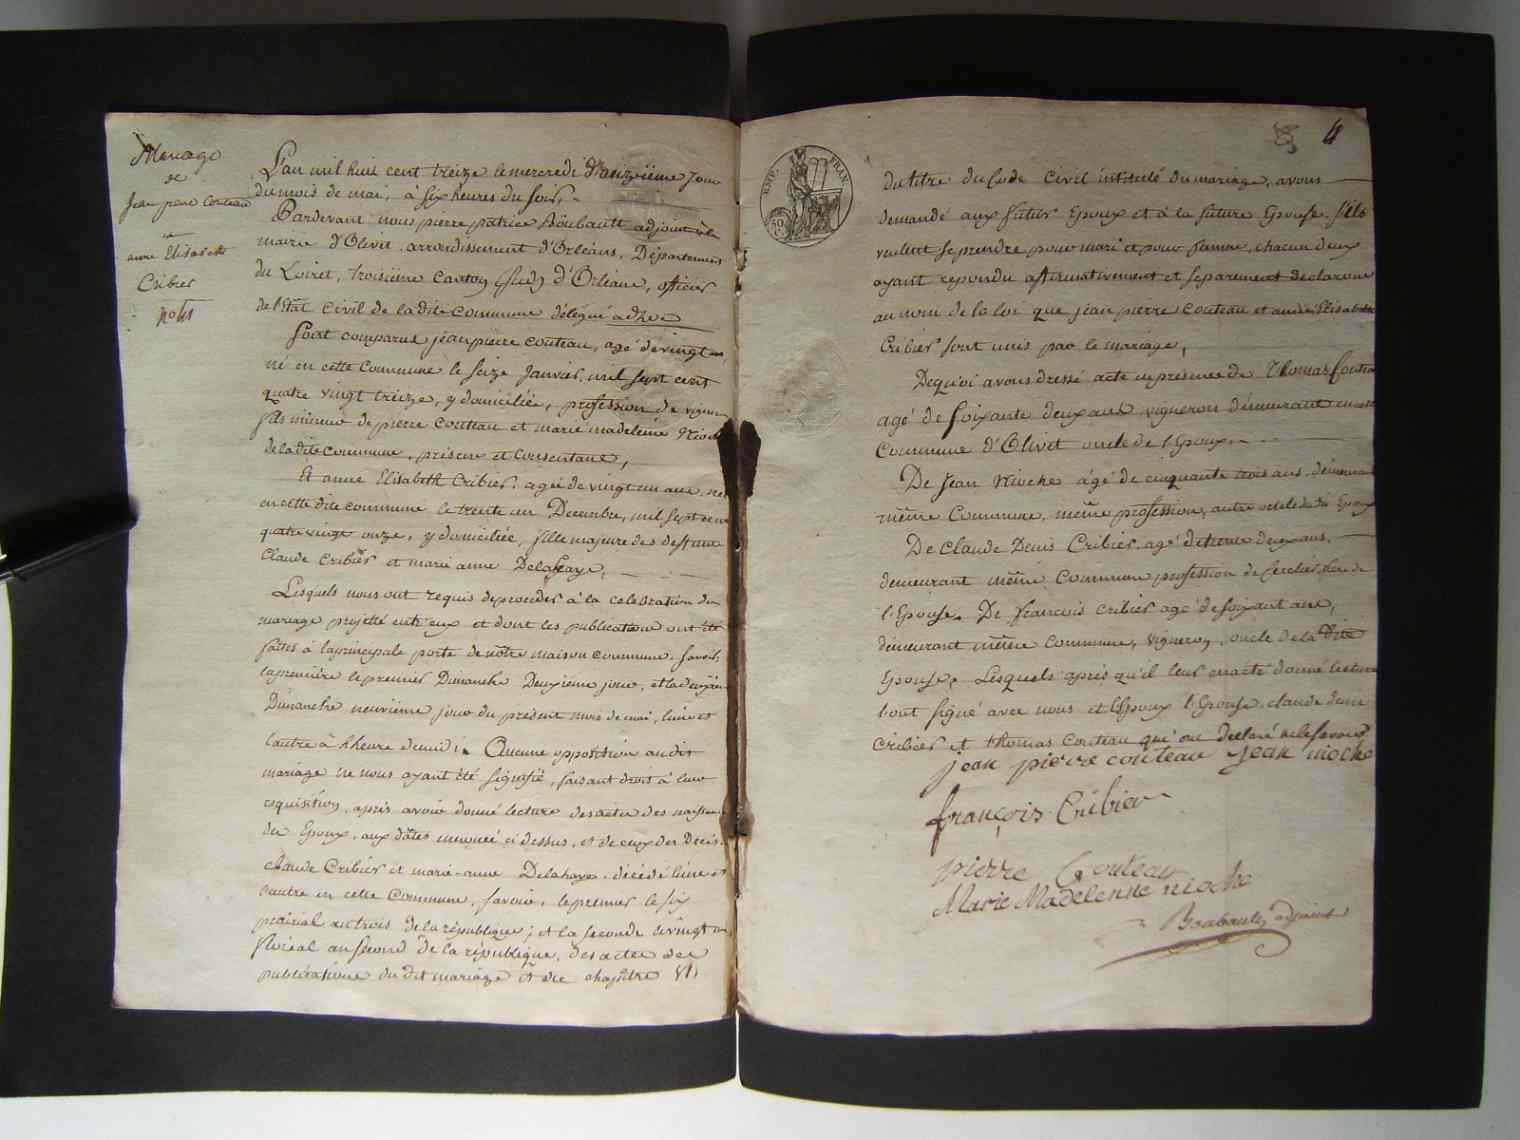 Mariage
de
Jean pierre Couteau
et
anne Elisabeth
Cribier
L'an mil huit cent treize le mercredi Douzième Jour
du mois de mai, à six heures du soir,
Pardevant nous pierre patrice adjoint à la
mairie d'Olivet arrondissement d'Orleans, Département
du Loiret, troisiéme Canton (sud) d'Orléans, officier
de l'Etat Civil de la dite Commune délégué ad hoc
Sont comparus jean pierre couteau, agé de vingt ans
né en cette Commune le seize Janvier, mil sept cent
quatre vingt treize, y domicilié, profession de vigneron
fils mineur de pierre Couteau et marie madeleine Nioche
de la dite Commune, présens et Consentans,
Et anne Elisabeth Cribier, agée de vingt un ans, née
en cette dite commune le trente un Décembre, mil sept cent
quatre vingt onze, y domiciliée, fille majeure des deffunts
Claude Cribier et marie anne Delahaye,
Lesquels nous ont requis de proceder à la celebration du
mariage projetté entr'eux et dont les publications ont été
faites à la principale porte de nôtre maison commune. savoir,
la première le premier Dimanche Deuxième jour, et la deuxieme
Dimanche neuvième jour du présent mois de mai, l'une et
l'autre à l'heure de midi. Aucune opposition au dit
mariage ne nous ayant été signifié, faisant droit à leur
requisition, après avoir donné lecture des actes des naissances
des Epoux, aux dâtes énoncé ci dessus, et de ceux des Décès
claude Cribier et marie-anne Delahaye, décédé l'un et
l'autre en cette Commune, savoir, le premier le six
prairial an trois de la république; et la seconde le vingt un
floreal an second de la république, des actes des
publications du dit mariage et du chapitre VI,
4
EMP. FRAN.
50
C
du titre du Code Civil intitulé du mariage, avons
demandé aux futur Epoux et à la future Epouse, s'ils
veulent se prendre pour mari et pour femme, chacun d'eux
ayant repondu affirmativement et separement declarons
au nom de la loi que jean pierre Couteau et anne Elisabeth
Cribier sont unis par le mariage,
De qu'oi avons dressé acte en présence de Thomas Couteau
agé de soixante deux ans vigneron demeurant en cette
Commune d'Olivet oncle de l'Epoux,
De Jean Nioche âgé de cinquante trois ans, demeurant
même Commune, même profession, autre oncle du dit Epoux
De Claude Denis Cribier, agé de trente deux ans,
demeurant même Commune profession de Cerclier, frere de
l'Epouse, De François Cribier agé de soixant ans,
demeurant même commune, vigneron, oncle de la dite
Epouse, Lesquels après qu'il leur en a été donné lecture
l'ont signé avec nous et l'Epoux l'Epouse, claude denis
Cribier et thomas Couteau qui ont Declaré ne le savoir
jean pierre couteau Jean nioche
françois Cribier
pierre Couteau
Marie Madelenne nioche
adjoint